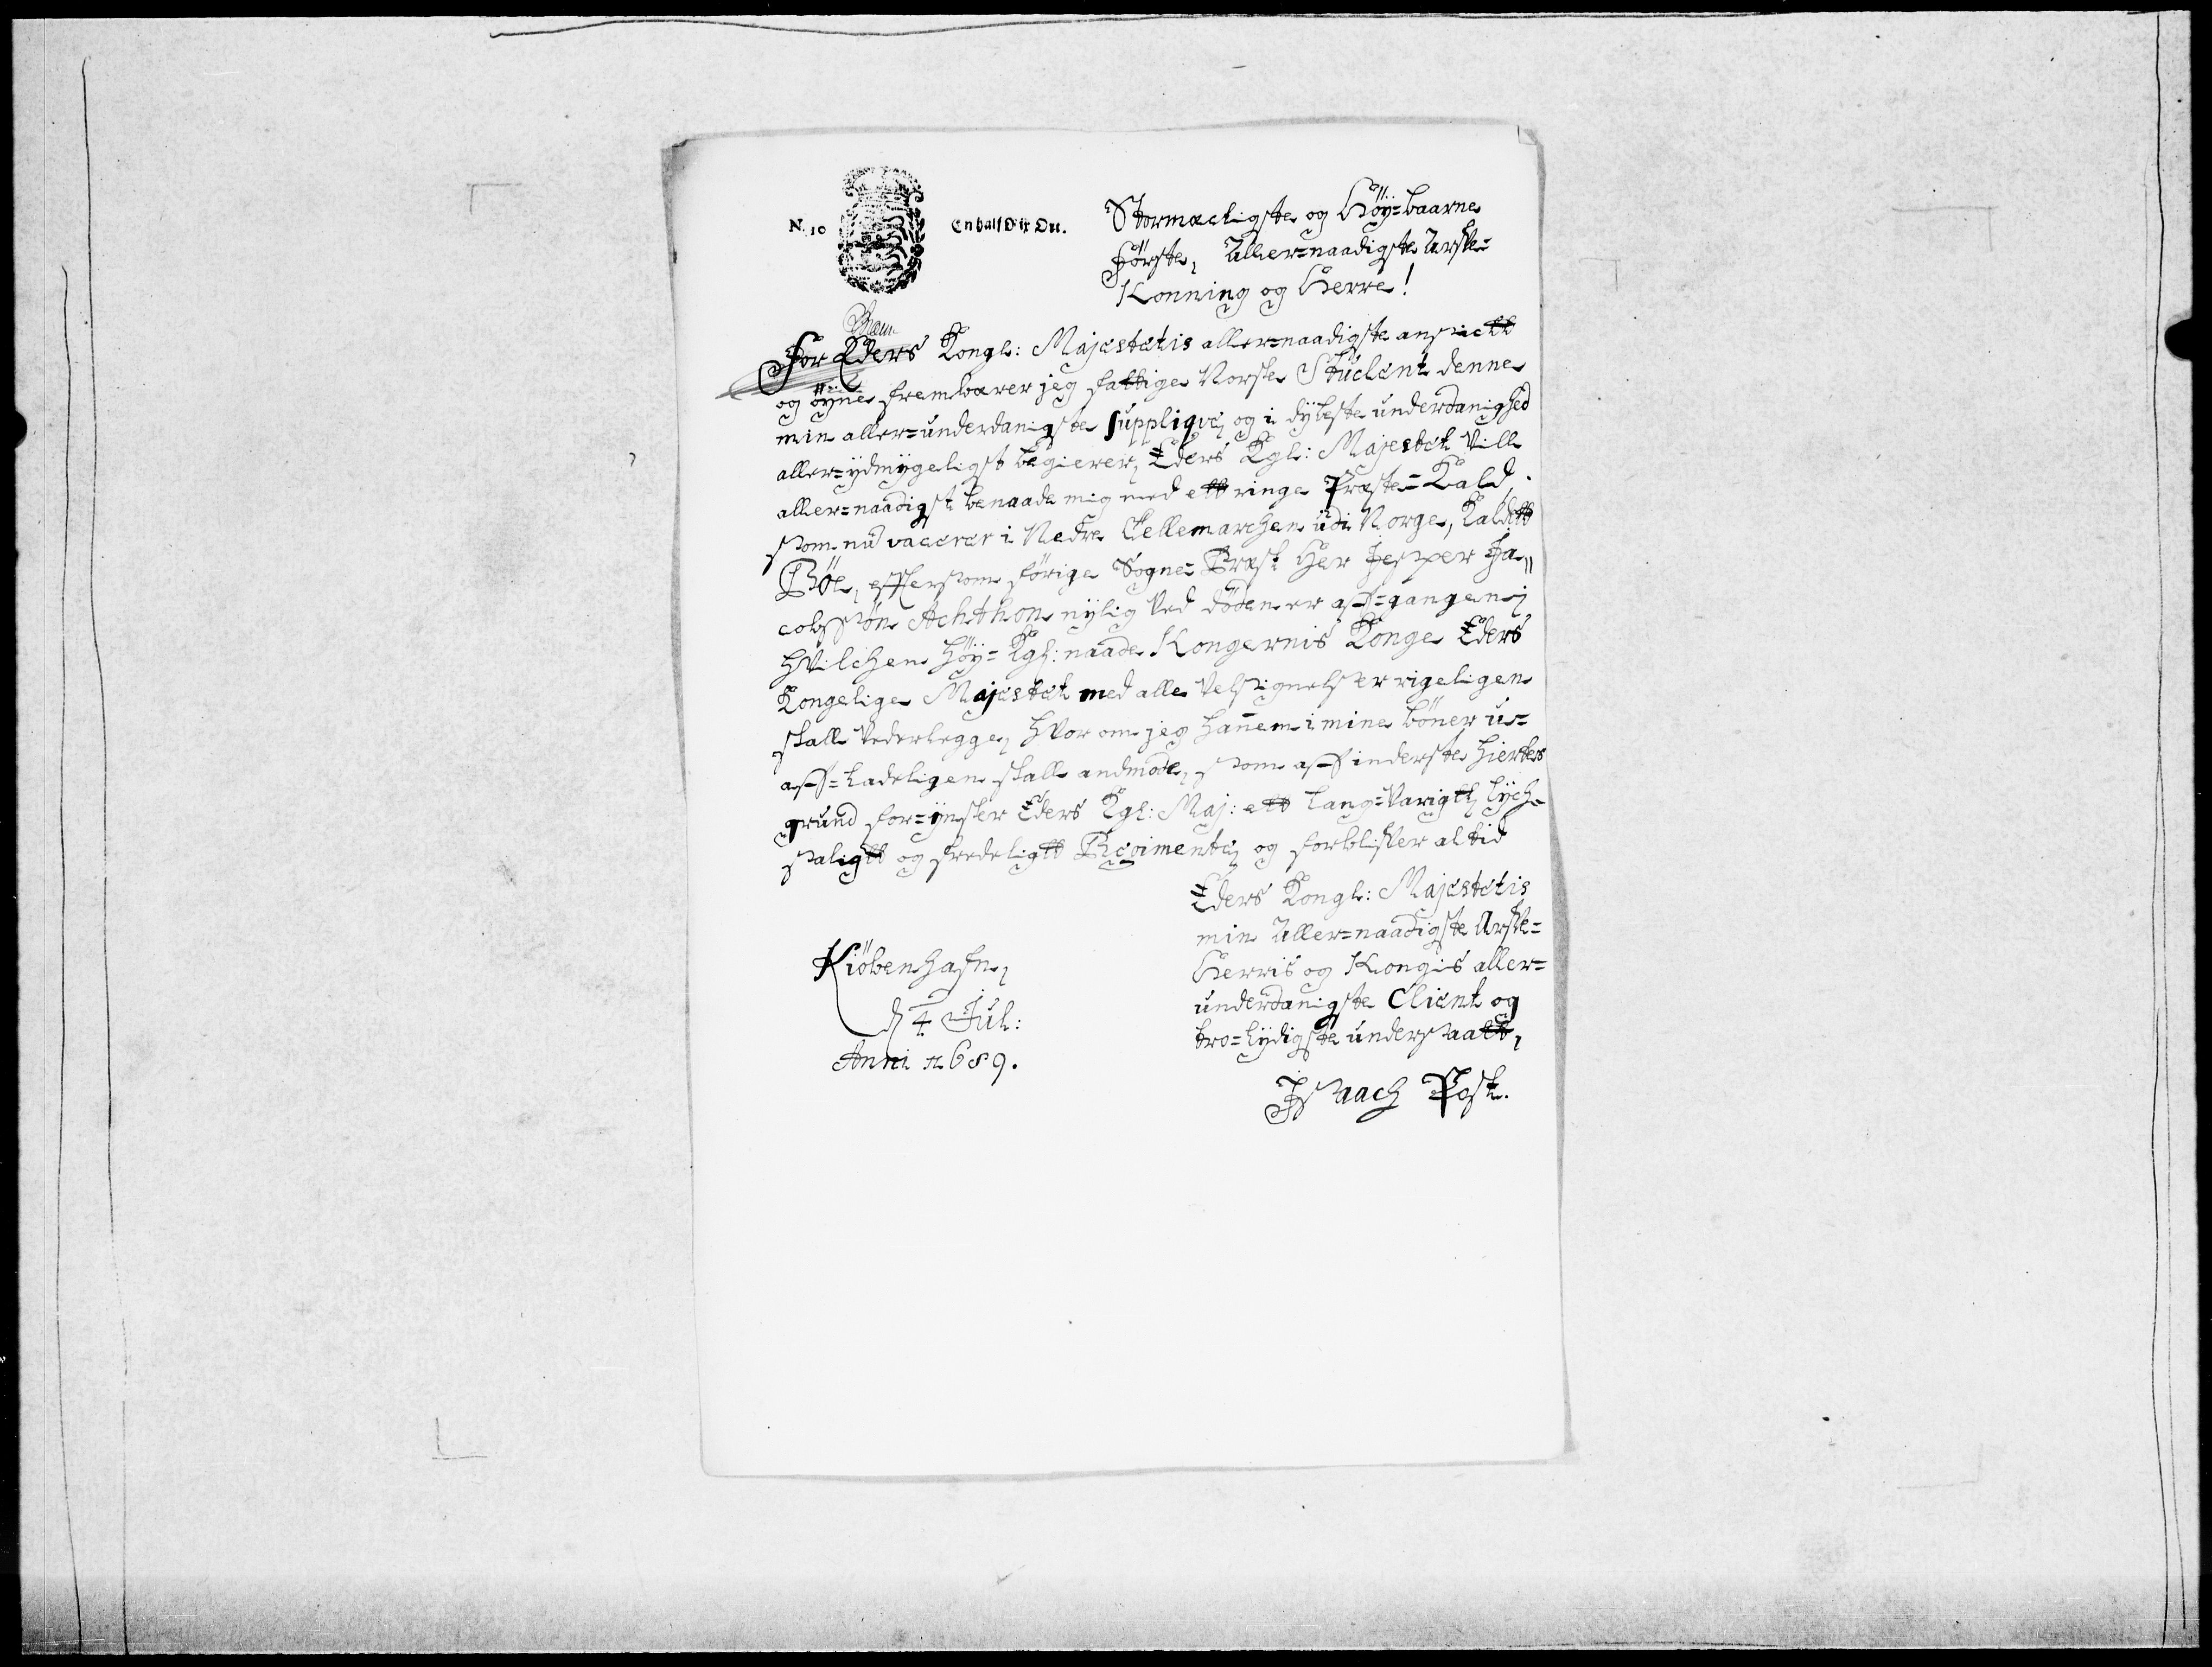 N. 10
En half Dlr Ort.
Stormæctigste og Höÿ=baarne
Förste, Aller=naadigste Arfve=
Konning og Herre!
For Eders Kongl: Majestetis aller=naadigste ansictt
og öÿne frembærer jeg fattige Norske Student denne
min aller=underdanigste suppliqve, og i dÿbeste underdanighed
aller=ÿdmÿgeligst begierer, Eders Kgl: Majestet Ville
aller=naadigst benaade mig med ett ringe Præste=Kald,
som nu vacerer i Nedre Tellemarchen udi Norge, Kaldett
Böe, efftersom förige Sogne=Præst Her Jesper Ja„
cobssön Achthon nÿlig Ved döden er aff=gangen,
hVilchen höÿ=Kgl: naade Kongernis Konge Eders
Kongelige Majestet med alle Velsignelser rigeligen
skall Vederlegge, hVor om jeg hannem i mine böner u=
aff=ladeligen skall andmode, som aff inderste hiertes
grund for=ÿnsker Eders Kgl: Maj: ett lang=Varigtt, lÿch=
saligtt og fredeligtt Regimente, og forblifver altid
Eders Kongl: Majestetis
min Aller=naadigste Arfve=
Herris og Kongis aller=
underdanigste Client og
tro=lÿdigste undersaatt,
Kiöbenhafn,
d 4 Jul:
Anni 1689.
Isaach Post.